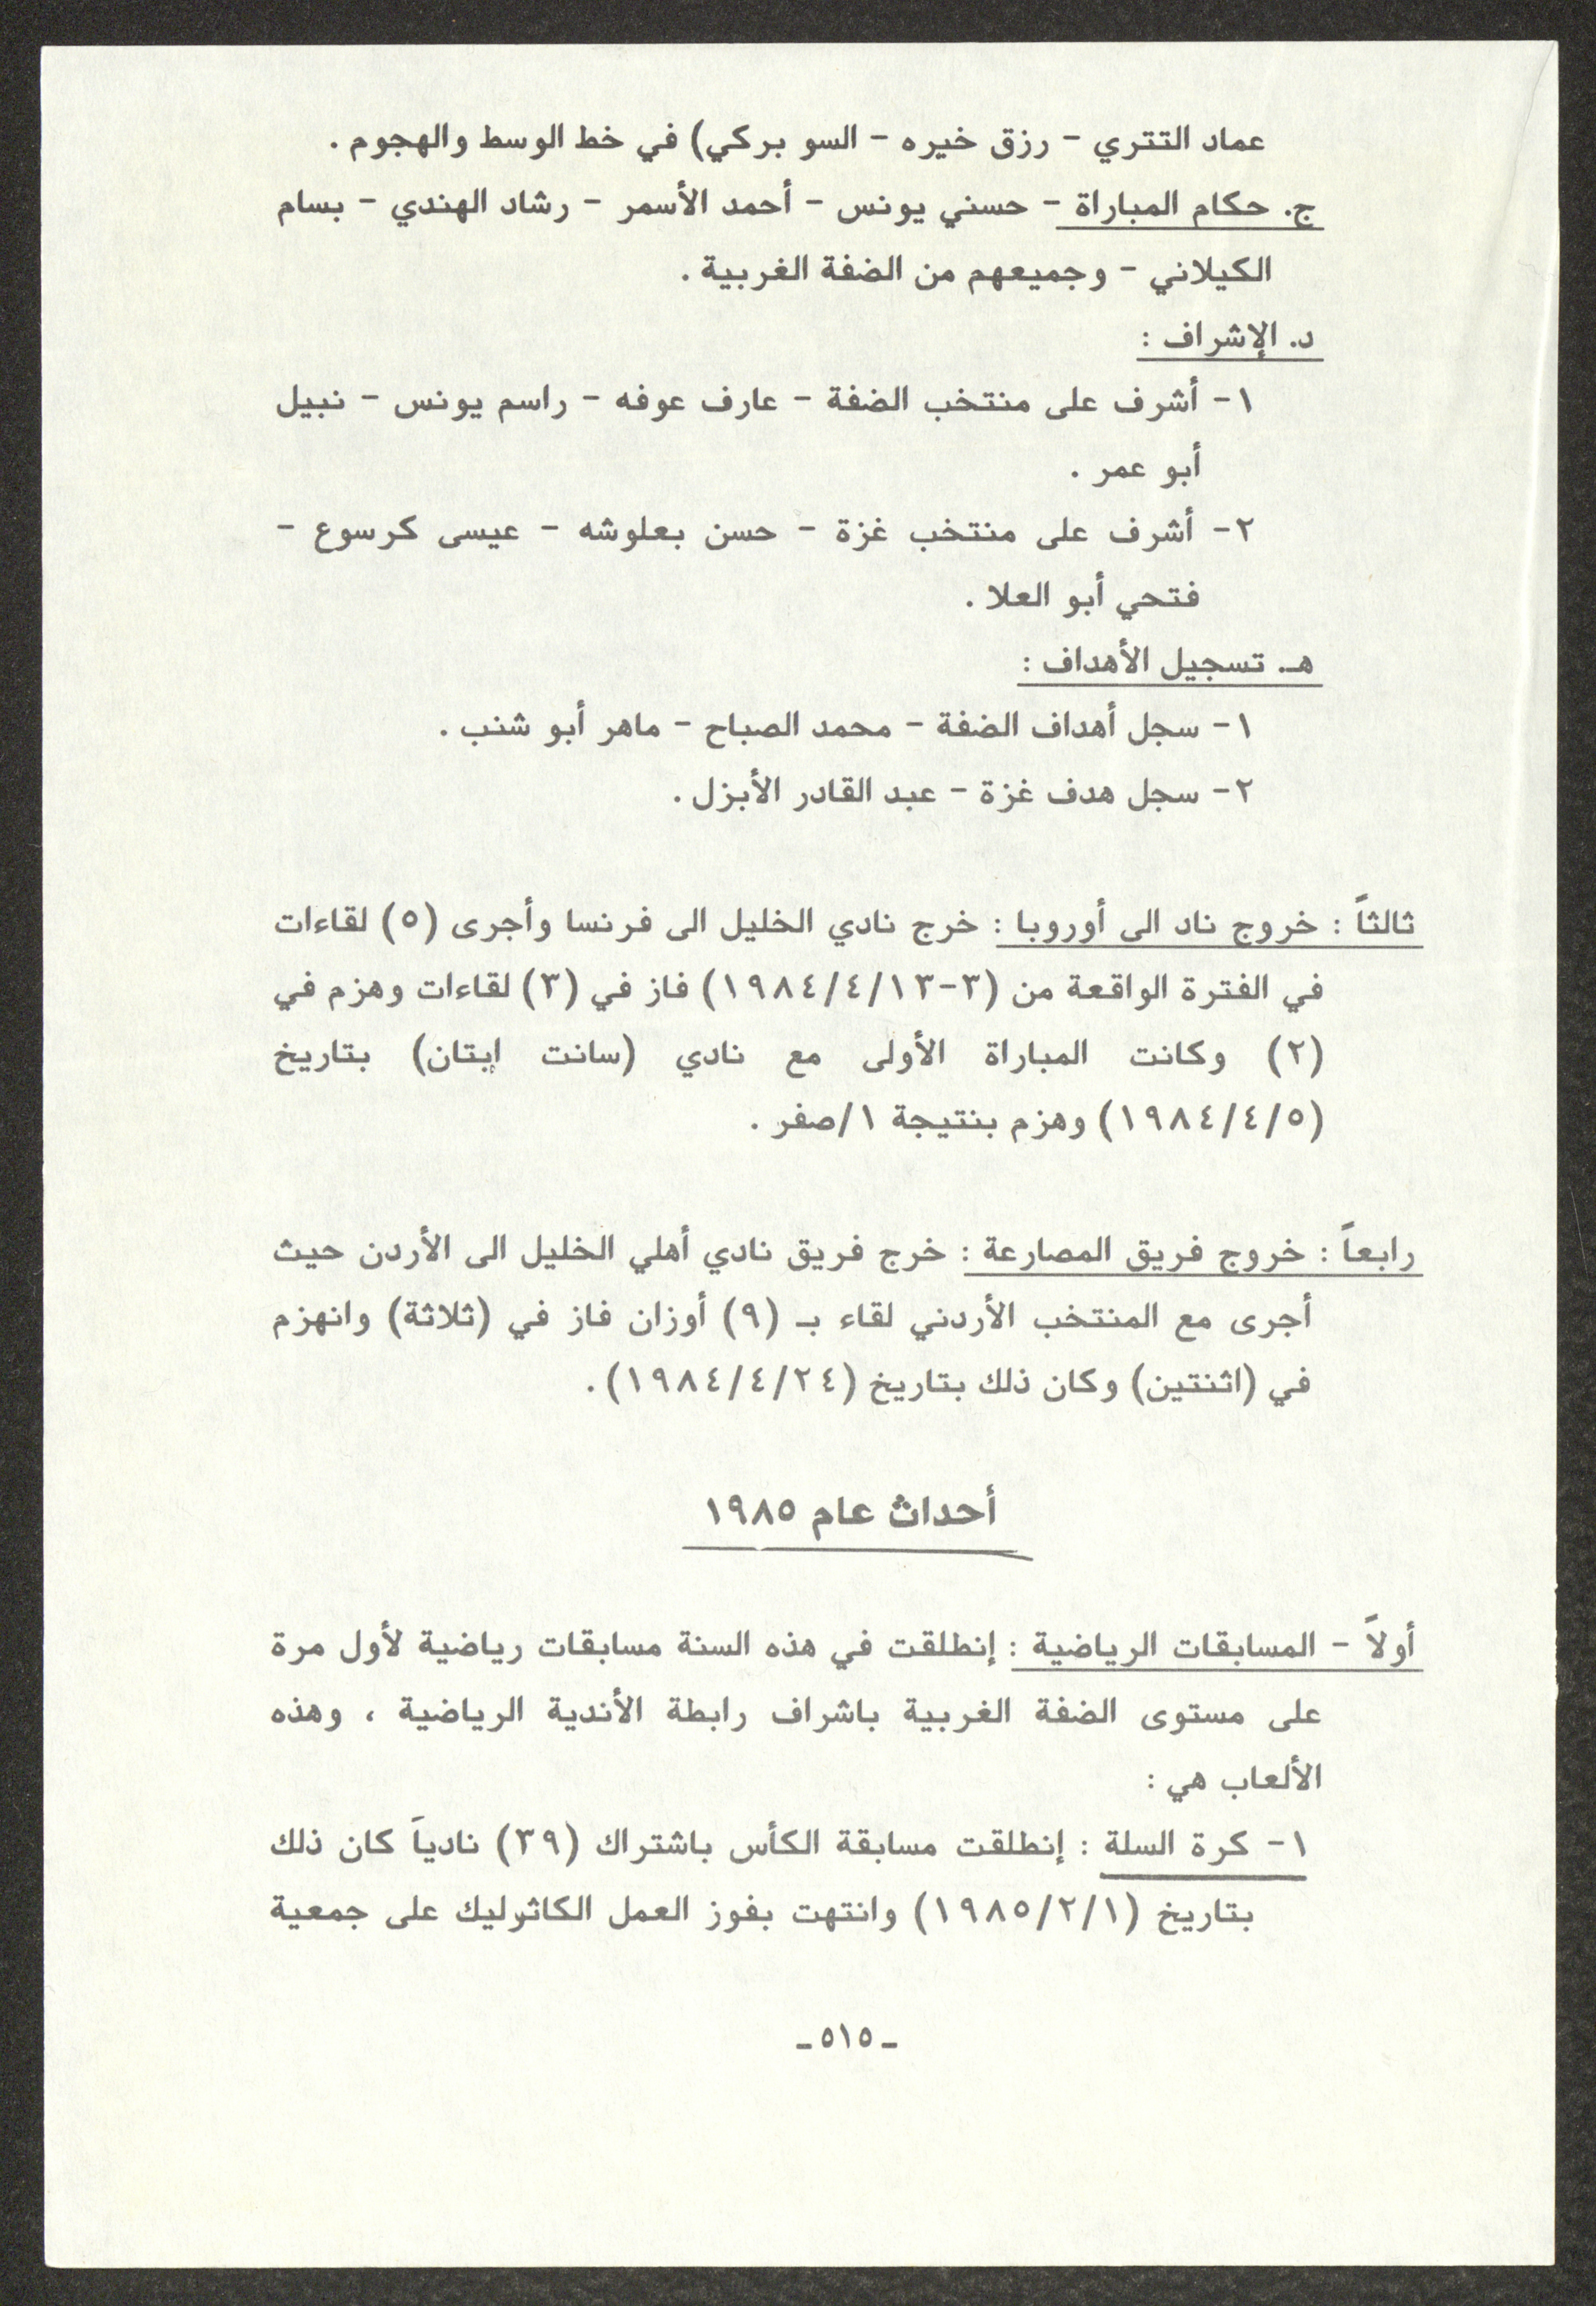 عماد التتري - رزق خيره - السو بركي) في خط الوسط والهجوم .
ج. حكام المباراة - حسني يونس - أحمد الأسمر - رشاد الهندي - بسام
الكيلاني - وجميعهم من الضفة الغربية .
د. الإشراف :
١- أشرف على منتخب الضفة - عارف عوفه - راسم يونس - نبيل
أبو عمر .
٢- أشرف على منتخب غزة - حسن بعلوشه - عيسى كرسوع -
فتحي أبو العلا .
هـ. تسجيل الأهداف :
١- سجل أهداف الضفة - محمد الصباح - ماهر أبو شنب .
٢- سجل هدف غزة - عبد القادر الأبزل .
ثالثاً : خروج ناد الى أوروبا : خرج نادي الخليل الى فرنسا وأجرى (٥) لقاءات
في الفترة الواقعة من (٣-١٩٨٤/٤/١٣) فاز في (٣) لقاءات وهزم في
(٢) وكانت المباراة الأولى مع نادي (سانت إيتان) بتاريخ
(١٩٨٤/٤/٥) وهزم بنتيجة ١/صفر .
رابعاً : خروج فريق المصارعة : خرج فريق نادي أهلي الخليل الى الأردن حيث
أجرى مع المنتخب الأردني لقاء بـ (٩) أوزان فاز في (ثلاثة) وانهزم
في (اثنتين) وكان ذلك بتاريخ (١٩٨٤/٤/٢٤) .
أحداث عام ١٩٨٥
أولاً - المسابقات الرياضية : إنطلقت في هذه السنة مسابقات رياضية لأول مرة
على مستوى الضفة الغربية باشراف رابطة الأندية الرياضية ، وهذه
الألعاب هي :
١- كرة السلة : إنطلقت مسابقة الكأس باشتراك (٣٩) نادياً كان ذلك
بتاريخ (١٩٨٥/٢/١) وانتهت بفوز العمل الكاثوليك على جمعية
ـ ٥١٥ ـ